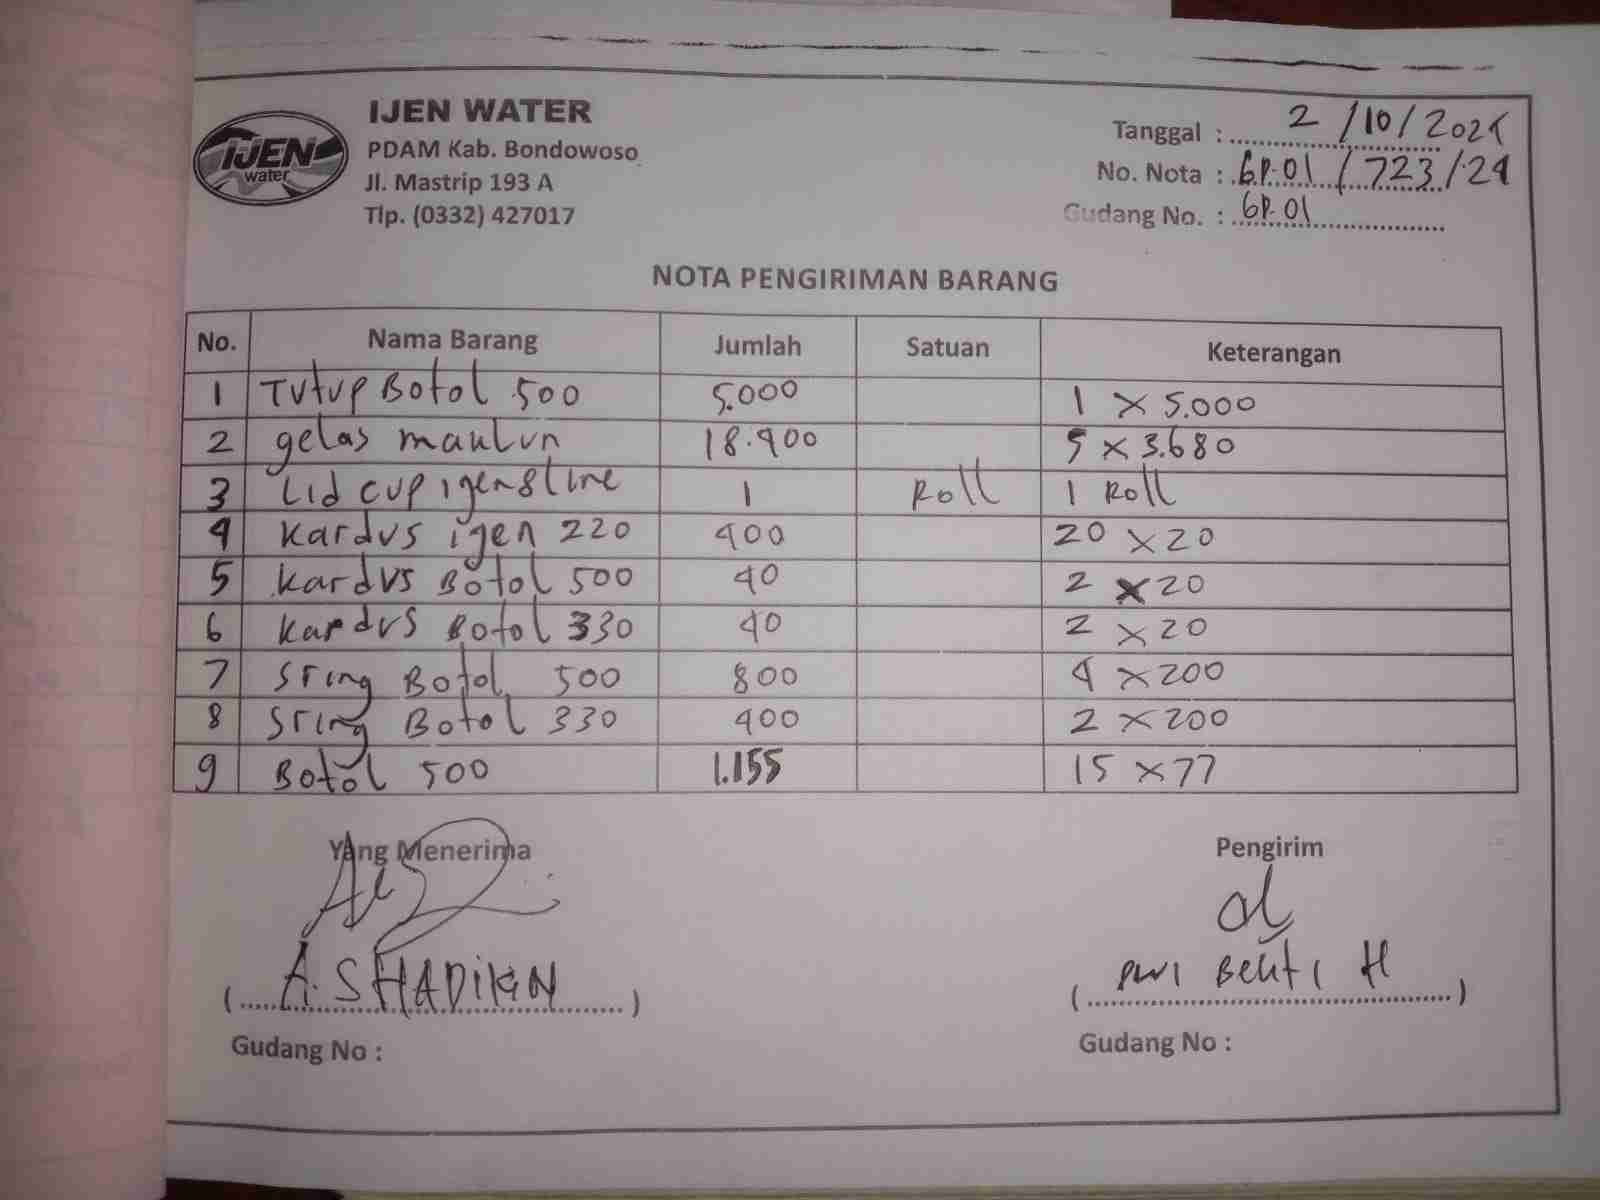 IJEN WATER
PDAM Kab. Bondowoso
Jl. Mastrip 193 A
Tlp. (0332) 427017
IJEN
water
Tanggal : 2/10/2024
No. Nota : GP.01/723/24
Gudang No. : GP.01
NOTA PENGIRIMAN BARANG
No. Nama Barang Jumlah Satuan Keterangan
1 Tutup Botol 500 5.000 1 x 5.000
2 gelas maklun 18.400 5 x 3.680
3 Lid cup igen 8 line 1 Roll 1 Roll
4 Kardus igen 220 400 20 x 20
5 Kardus Botol 500 40 2 x 20
6 Kardus Botol 330 40 2 x 20
7 Sring Botol 500 800 4 x 200
8 Sring Botol 330 400 2 x 200
9 Botol 500 1.155 15 x 77
Yang Menerima Pengirim
(A. SHADIKIN) (Bekti H)
Gudang No : Gudang No :